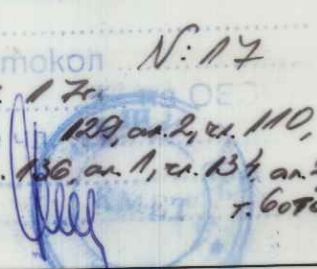 токол N: 17
17г.
129, ал. 2, чл. 110,
136, ал. 1, чл. 134, ал. 2
т. 6 от
КМЕТ